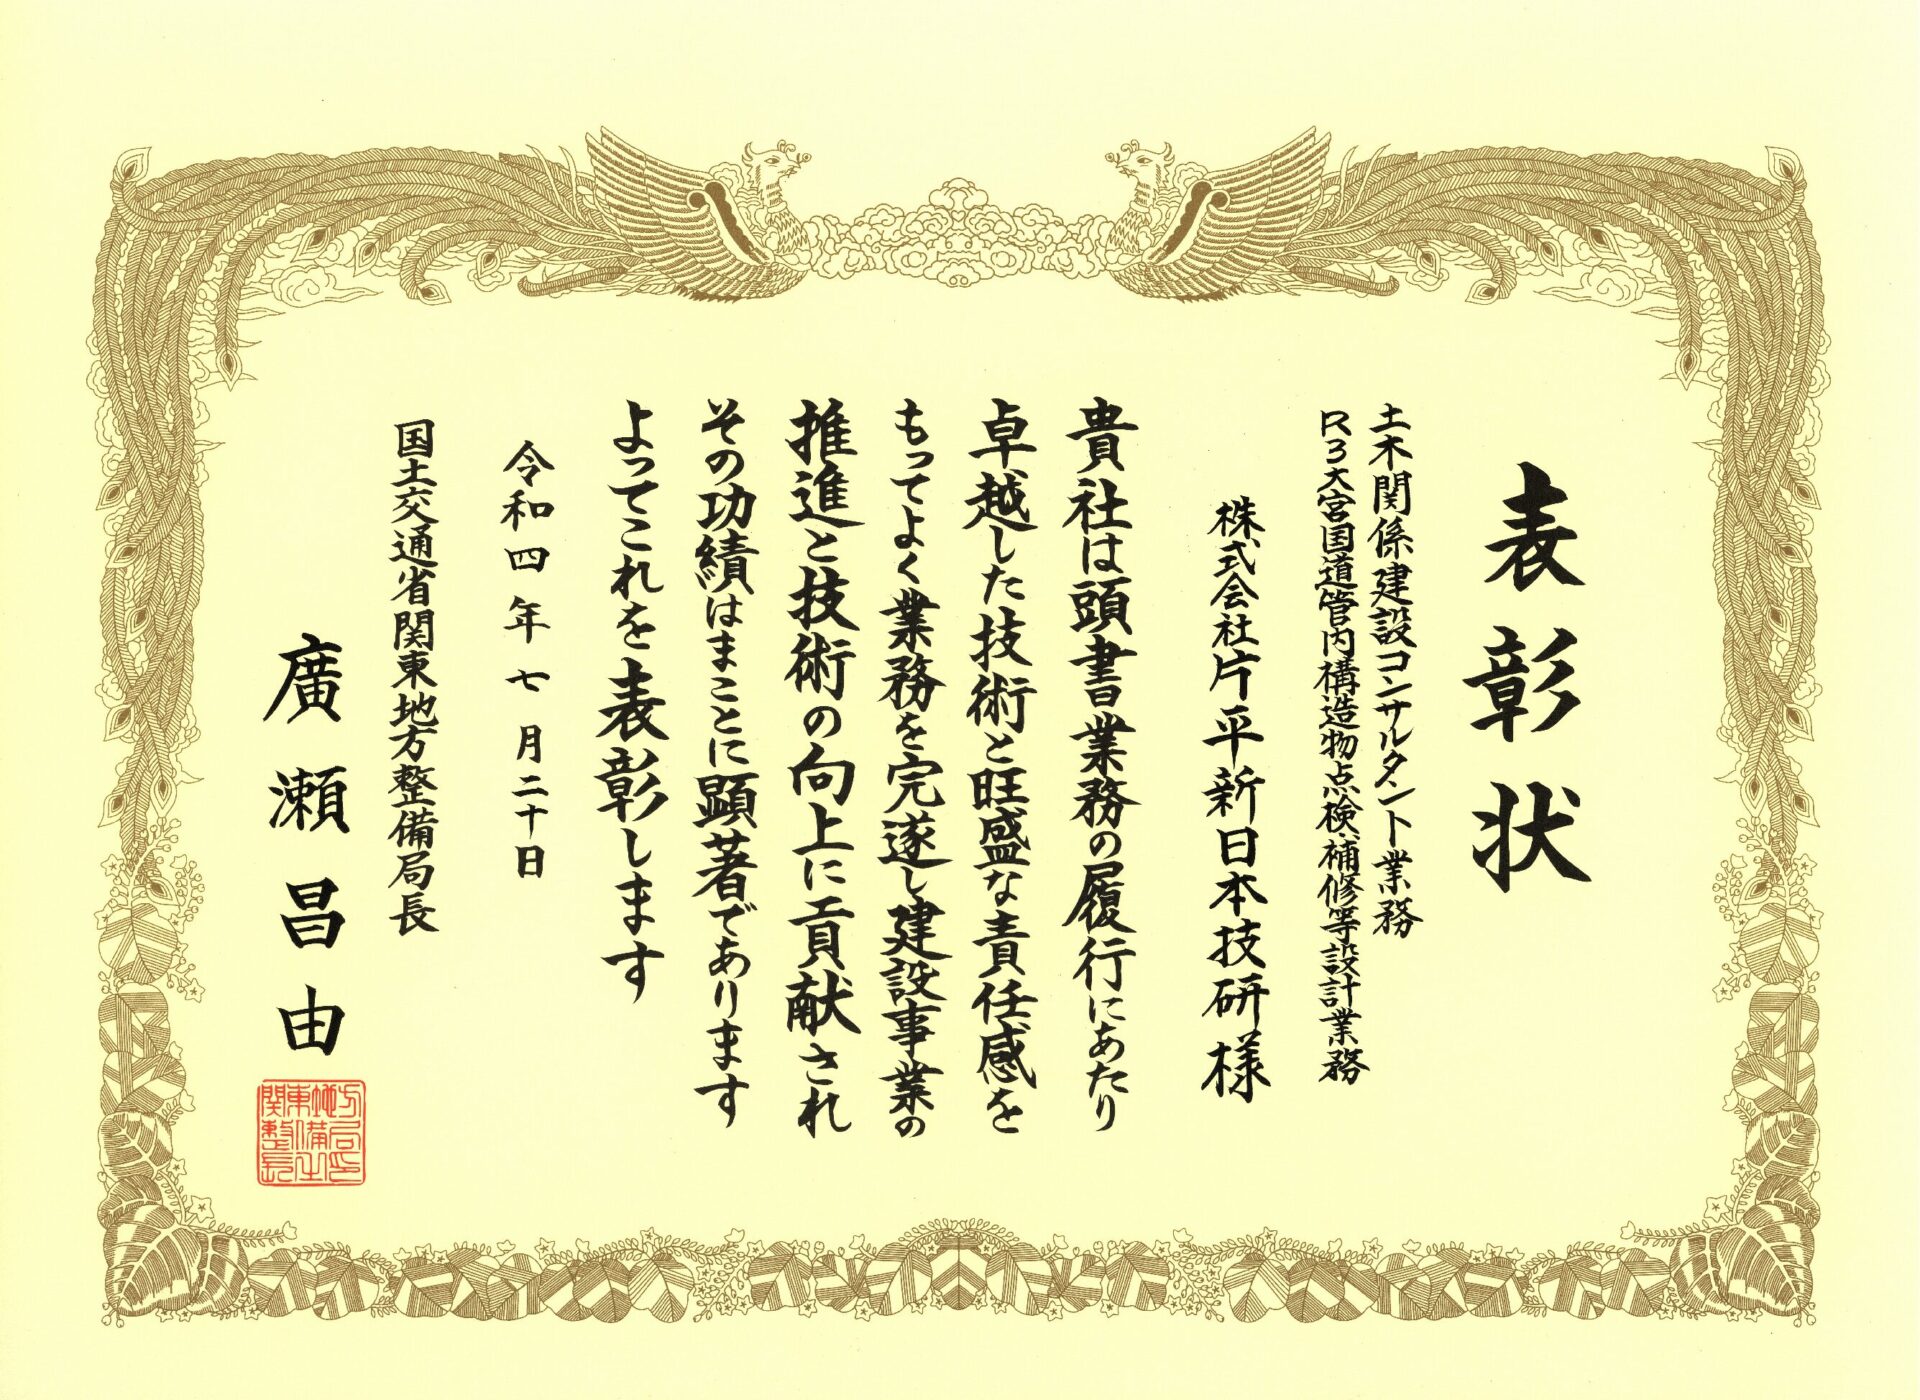 表彰状
土木関係建設コンサルタント業務
R3大宮国道管内構造物点検補修等設計業務
株式会社片平新日本技研様
貴社は頭書業務の履行にあたり
卓越した技術と旺盛な責任感を
もってよく業務を完遂し建設事業の
推進と技術の向上に貢献され
その功績はまことに顕著であります
よってこれを表彰します
令和四年七月二十日
国土交通省関東地方整備局長
廣瀬昌由
関東地方整備局長之印